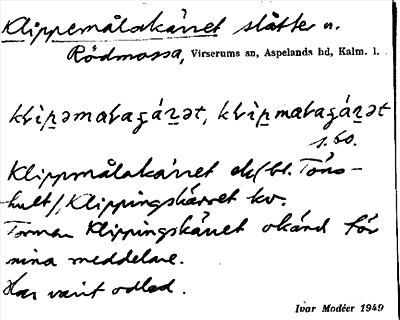 Klippemålakärret slåtter u.
Rödmossa, Virserums sn, Aspelands hd, Kalm. l.
s. 60.
Klippmålakärret ek/bl. Töns-
hult/, Klippingskärret kv.
Formen Klippingskärret okänd för
mina meddelare.
Har varit odlad.
Ivar Modéer 1949